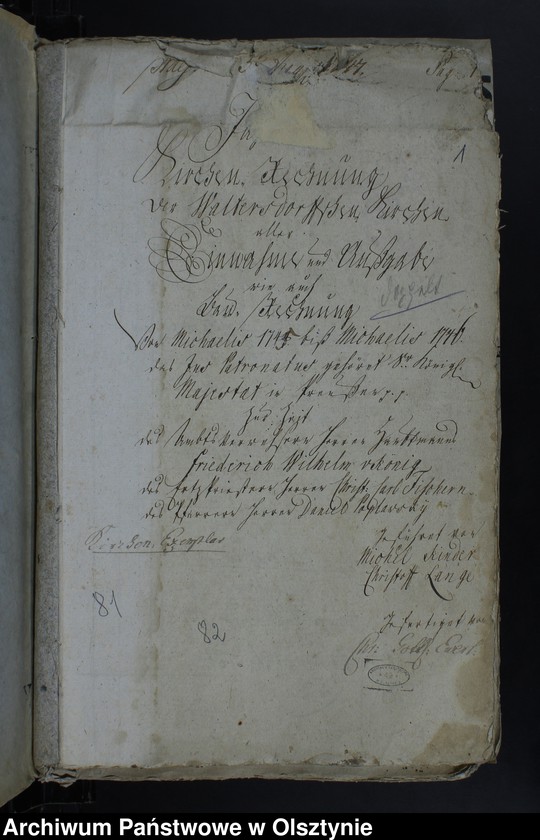 1
Kirchen Rechnung
der Waltersdorffschen Kirchen
aller
Einnahme und Außgabe
wie auch
Bau Rechnung
Von Michaelis 1745 biß Michaelis 1746.
das Jus Patronatus gehöret Sr. Königl.
Majestat in Preussen
Zur Zeit
des Amtsverwesers Herrn Hauptmanns
Friederich Wilhelm v König
des ErtzPriesters Herrn Christ. Carl Fischern
des Pfarrers Herrn Daniel
Kirchen Exemplar
geführet von
Michel Kinder
Christoff Lange
81
82
gefertiget von
Archiwum Państwowe w Olsztynie